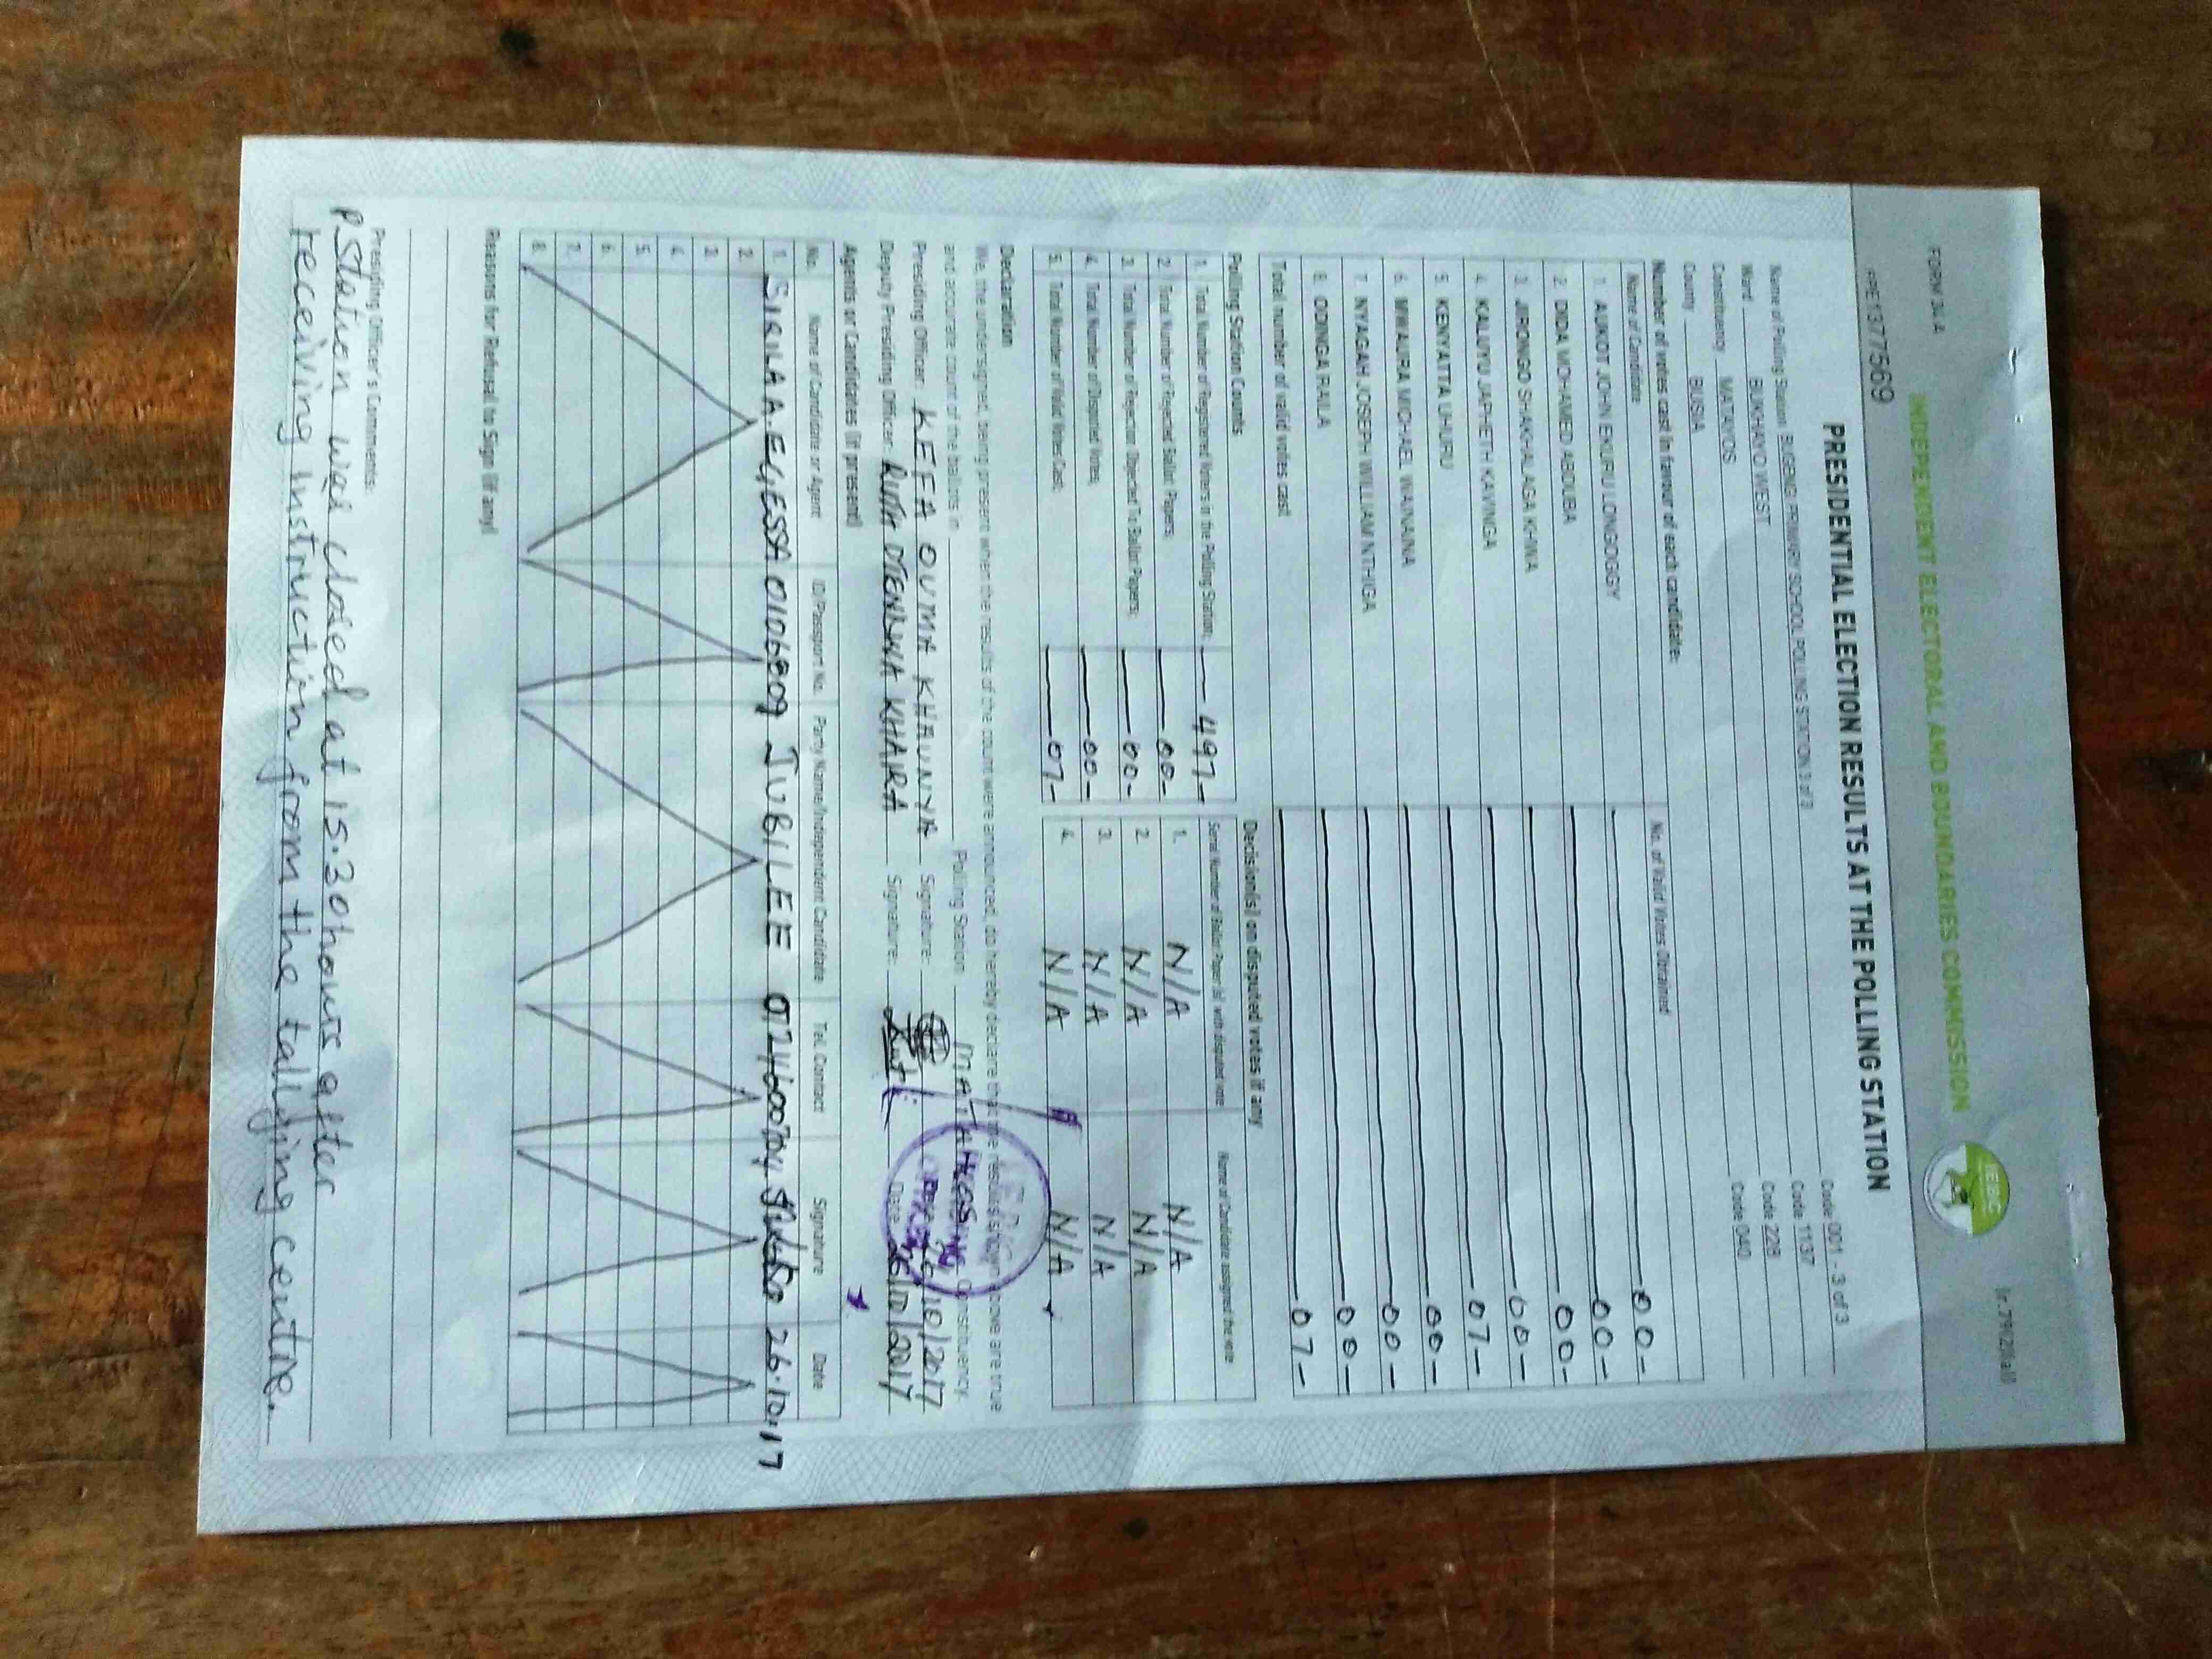 FORM 34A
INDEPENDENT ELECTORAL AND BOUNDARIES COMMISSION
IEBC
PRE1377569
PRESIDENTIAL ELECTION RESULTS AT THE POLLING STATION
Name of Polling Station BUGENG PRIMARY SCHOOL POLLING STATION 3 of 3 Code 001 - 3 of 3
Ward BUKHAYO WEST Code 1137
Constituency MATAYOS Code 228
County BUSIA Code 040
Number of votes cast in favour of each candidate:
Name of Candidate No. of Valid Votes Obtained
1. AUKOT JOHN EKURU LONGOGGY 00-
2. DIDA MOHAMED ABDUBA 00-
3. JIRONGO SHAKHALAGA KHWA 00-
4. KALUYU JAPHETH KAVINGA 00-
5. KENYATTA UHURU 07-
6. MWAURA MICHAEL WAINAINA 00-
7. NYAGAH JOSEPH WILLIAM NTHIGA 00-
8. ODINGA RAILA 00-
Total number of valid votes cast 07-
Polling Station Counts
1. Total Number of Registered Voters in the Polling Station; 497-
2. Total Number of Rejected Ballot Papers; 00-
3. Total Number of Rejection Objected To Ballot Papers; 00-
4. Total Number of Disputed Votes; 00-
5. Total Number of Valid Votes Cast; 07-
Decision(s) on disputed votes if any
Serial Number of Ballot Paper (s) with disputed vote Name of Candidate assigned the vote
1. N/A N/A
2. N/A N/A
3. N/A N/A
4. N/A N/A
Declaration
We, the undersigned, being present when the results of the count were announced, do hereby declare that the results shown above are true
and accurate count of the ballots in Polling Station MATAYOS Constituency.
Presiding Officer: KEFA OUMA KHAUNYA Signature: Date 26/10/2017
Deputy Presiding Officer: RUTH KHAIRA Signature: Date 26/10/2017
Agents or Candidates (if present)
No. Name of Candidate or Agent ID/Passport No. Party Name/Independent Candidate Tel. Contact Signature Date
1. 0106809 JUBILEE 26.10.17
2.
3.
4.
5.
6.
7.
8.
Reasons for Refusal to Sign (if any)
Presiding Officer's Comments:
P Station was closed at 15.30 hours after
receiving instruction from the tallying centre.